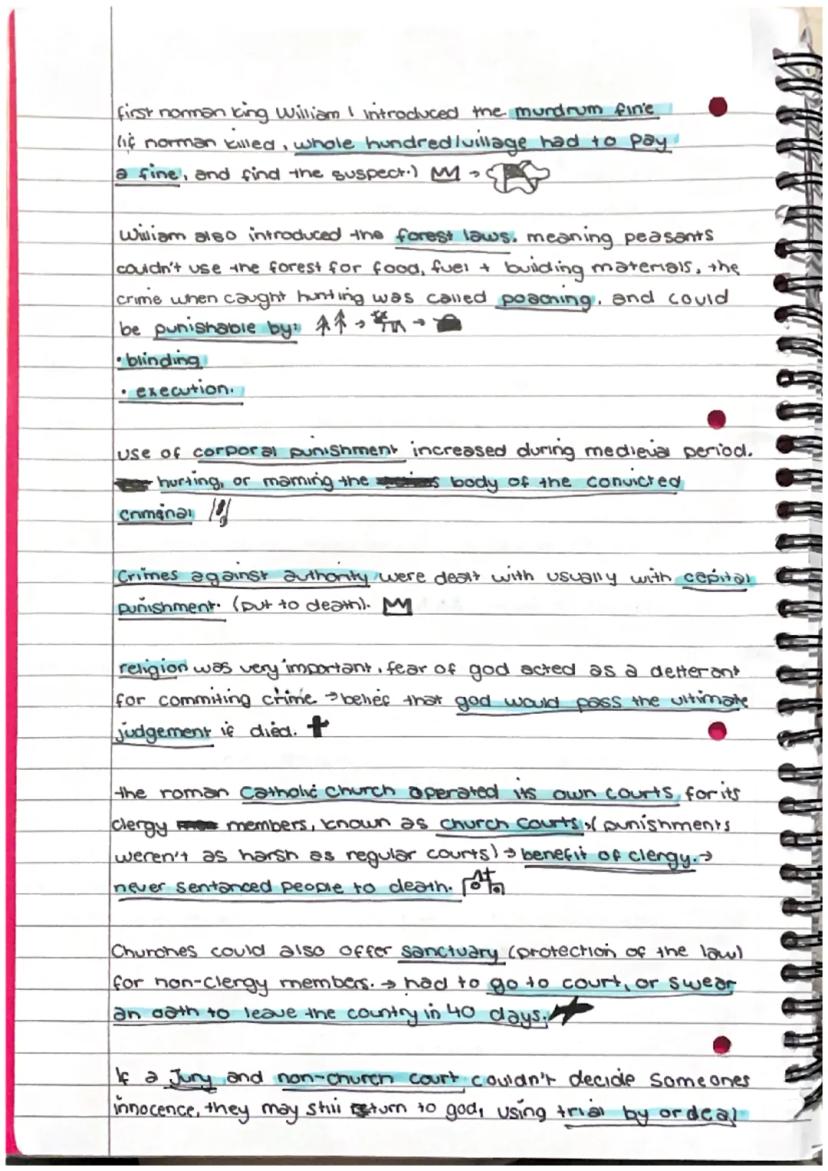 first norman king William I introduced the murdrum fine
(if norman killed, whole hundred/village had to pay
a fine, and find the suspect.)
William also introduced the forest laws, meaning peasants
couldn't use the forest for food, fuel + building materials, the
crime when caught hunting was called poaching, and could
be punishable by:
• blinding
• execution.
use of corporal punishment increased during medieval period.
hurting, or maming the body of the convicted
criminal
Crimes against authority were dealt with usually with capital
punishment. (put to death).
religion was very important, fear of god acted as a detterant
for commiting crime → belief that god would pass the ultimate
judgement if died.
the roman catholic church operated its own courts for its
clergy members, known as church courts. (punishments
weren't as harsh as regular courts) → benefit of clergy. →
never sentanced people to death.
Churches could also offer sanctuary (protection of the law)
for non-clergy members. → had to go to court, or swear
an oath to leave the country in 40 days.
If a Jury and non-church court couldn't decide someones
innocence, they may still turn to god, using trial by ordeal